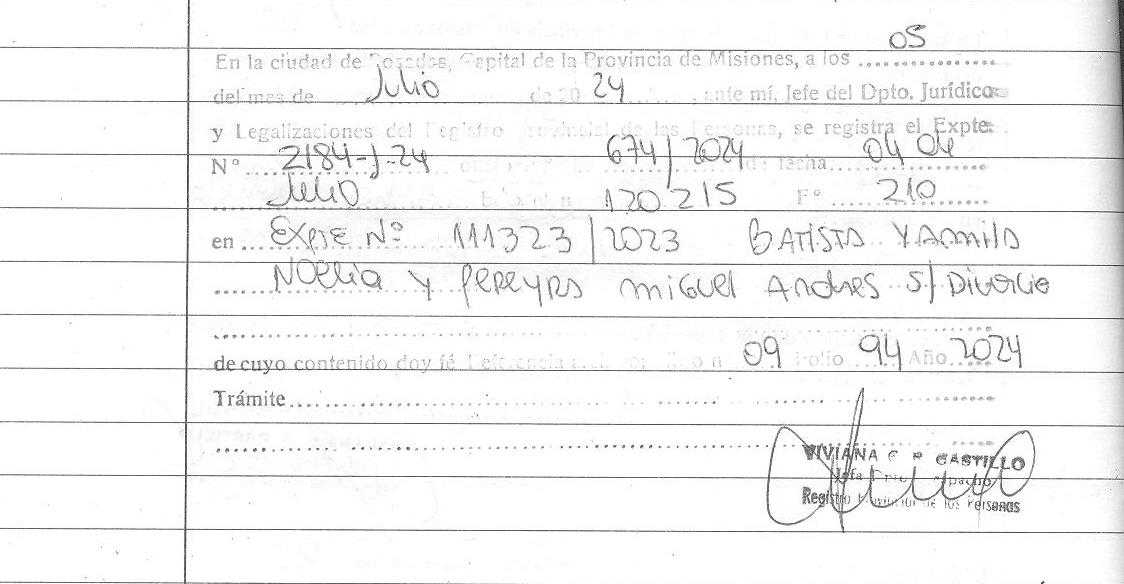 En la ciudad de Posadas, Capital de la Provincia de Misiones, a los 05
del mes de Julio de 20 24, ante mí, Jefe del Dpto. Jurídico
y Legalizaciones del Registro Provincial de las Personas, se registra el Expte.
N° 2184-J-24 674/2024 de fecha 04 04
Julio 120.215 F° 210
en EXPTE Nº 111323/2023 BATISTA YAMILA
NOELIA Y PEREYRA MIGUEL ANDRES S/ DIVORCIO
de cuyo contenido doy fé 09 Folio 94 Año 2024
Trámite
VIVIANA CASTILLO
Jefa Dpto. Despacho
Registro Provincial de las Personas